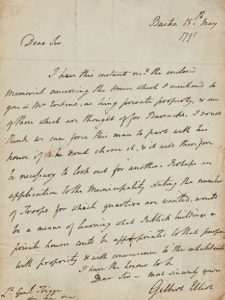 Bastia 15th May
1795
Dear Sir
I have this instant recd the enclosed
Memorial concerning the House which I mentioned to
you & Mr Erskine, as being private property, & one
of those which are thought of for Barracks. I do not
think we can force this man to part with his
house if he does not chuse it, & it will therefore
be necessary to look out for another. Perhaps an
application to the Municipality stating the number
of Troops for which quarters are wanted, would
be a means of learning what Publick buildings or
private houses could be appropriated to that purpose
with propriety & with convenience to the inhabitants
I have the honor to be
Dear Sir most sincerely yours
Gilbert Elliot
Genl Trigge